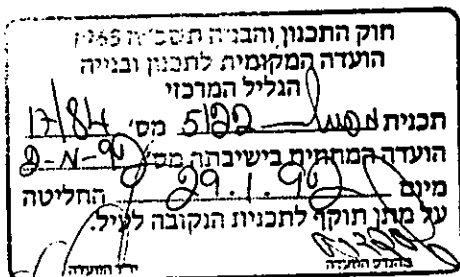 חוק התכנון והבניה תשכ״ה 1965
הועדה המקומית לתכנון ובנייה
הגליל המרכזי
תכנית 5122 מס׳ 17/84
הועדה המחוזית בישיבתה מס׳
מיום 29.1.92 החליטה
על מתן תוקף לתכנית הנקובה לעיל.
מהנדס הועדה יו״ר הועדה